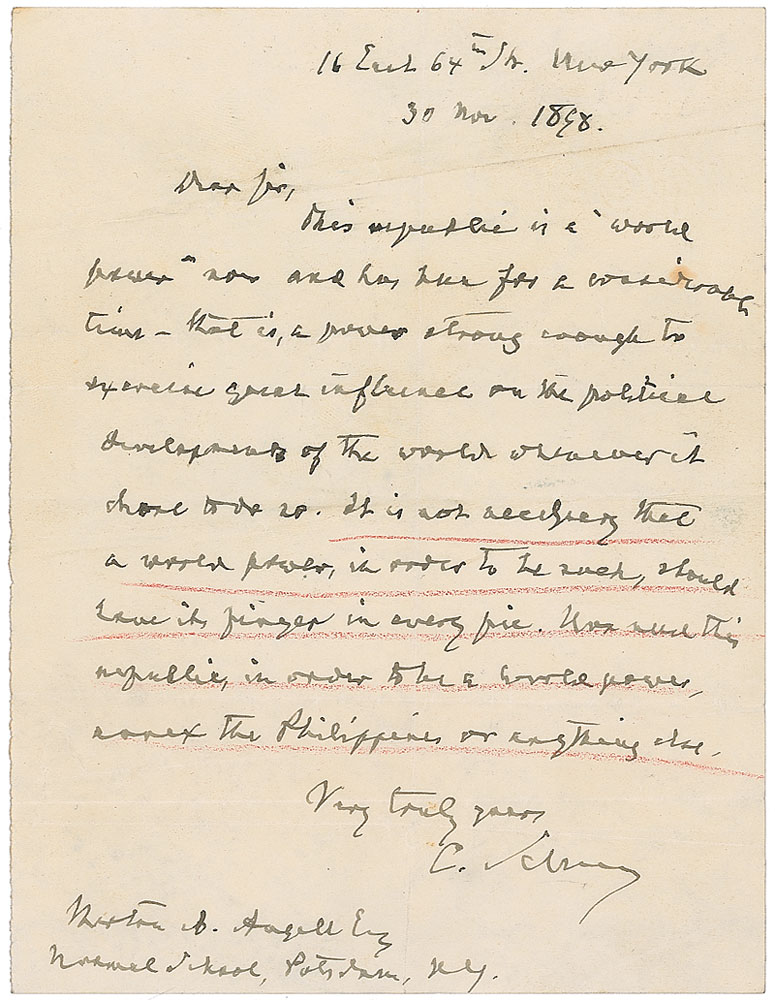 16 East 64th Str. New York
30 Nov. 1898.
Dear Sir,
This republic is a "world
power" now and has been for a considerable
time – that is, a power strong enough to
exercise great influence on the political
developments of the world whenever it
chose to do so. It is not necessary that
a world power, in order to be such, should
have its finger in every pie. Nor must this
republic, in order to be a world power,
annex the Philippines or anything else.
Very truly yours
C. Schurz
A. Angell Esq
Normal School, Potsdam, N.Y.